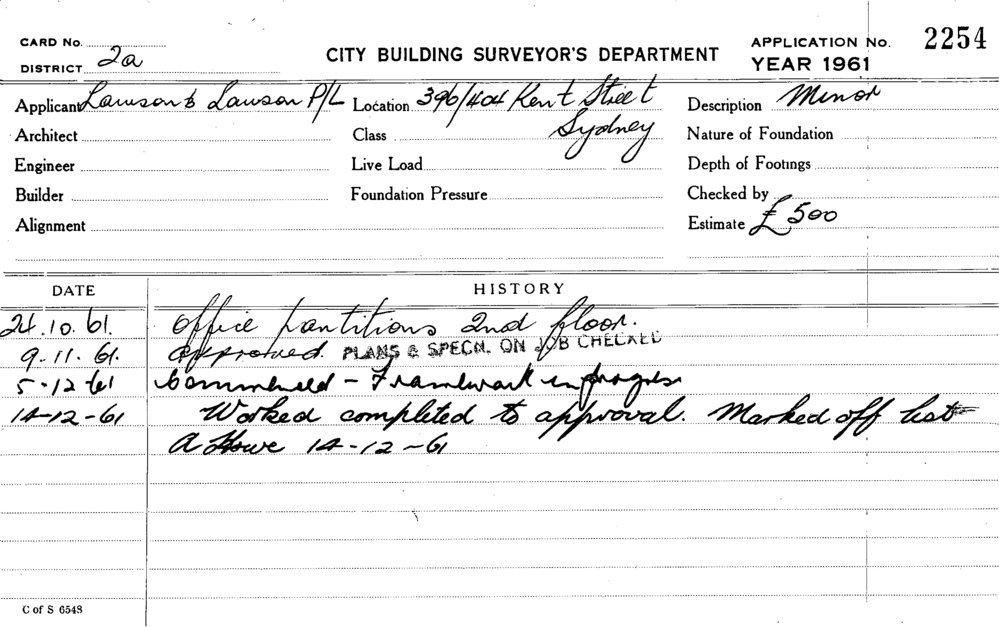 CARD No.
DISTRICT 2a
CITY BUILDING SURVEYOR'S DEPARTMENT
APPLICATION No. 2254
YEAR 1961
Applicant Lawson & Lawson P/L Location 396/404 Kent Street Description Minor
Architect Class Sydney Nature of Foundation
Engineer Live Load Depth of Footings
Builder Foundation Pressure Checked by
Alignment Estimate £500
DATE HISTORY
24.10.61. Office Partitions 2nd floor.
9.11.61. Approved. PLANS & SPECN. ON JOB CHECKED
5.12.61 Commenced - Framework in progress
14-12-61 Worked completed to approval. Marked off list
A Howe 14-12-61
C of S 6548